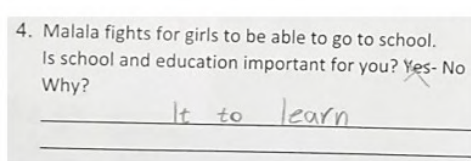 4. Malala fights for girls to be able to go to school.
Is school and education important for you? Yes- No
Why?
It to learn